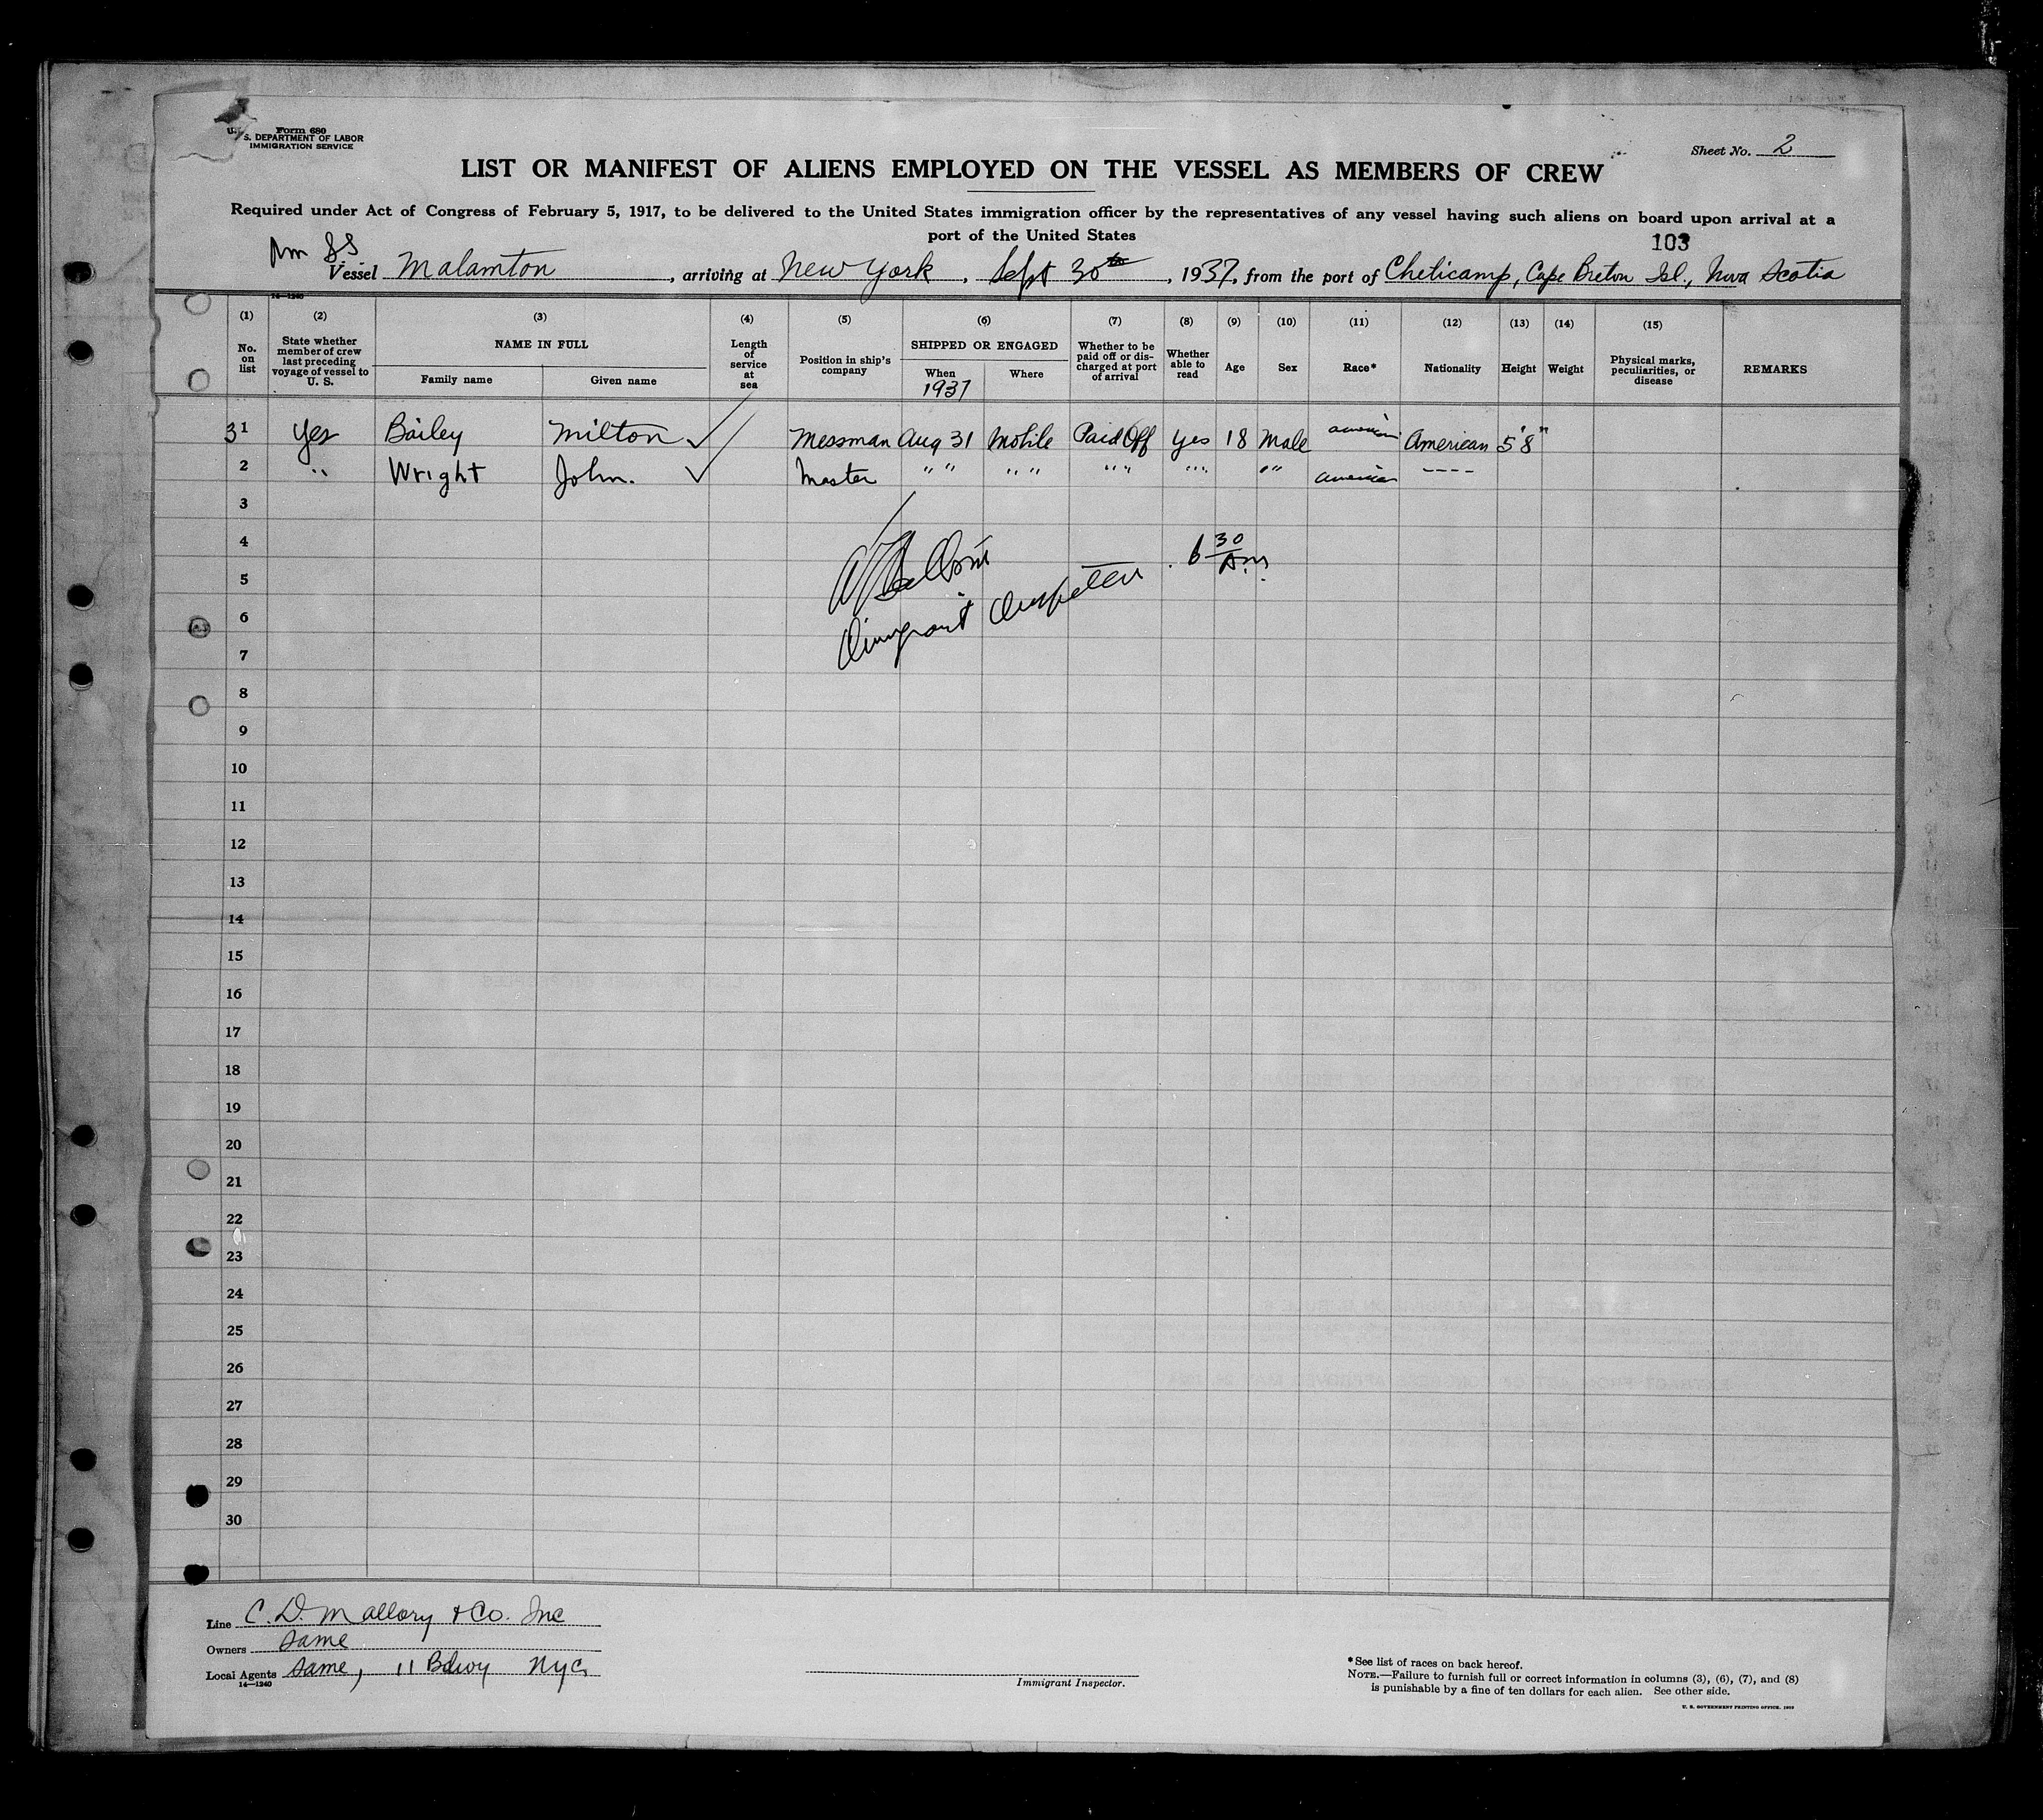 Form 680
U. S. DEPARTMENT OF LABOR
IMMIGRATION SERVICE
Sheet No. 2
LIST OR MANIFEST OF ALIENS EMPLOYED ON THE VESSEL AS MEMBERS OF CREW
Required under Act of Congress of February 5, 1917, to be delivered to the United States immigration officer by the representatives of any vessel having such aliens on board upon arrival at a
port of the United States
103
Am S.S.
Vessel Malamton, arriving at New York, Sept 30th, 1937, from the port of Cheticamp, Cape Breton Isl., Nova Scotia
14—1240
(1) (2) (3) (4) (5) (6) (7) (8) (9) (10) (11) (12) (13) (14) (15)
No. on list
State whether member of crew last preceding voyage of vessel to U. S.
NAME IN FULL
Family name
Given name
Length of service at sea
Position in ship's company
SHIPPED OR ENGAGED
When
1937
Where
Whether to be paid off or discharged at port of arrival
Whether able to read
Age
Sex
Race*
Nationality
Height
Weight
Physical marks, peculiarities, or disease
REMARKS
31 Yes Bailey Milton ✓ Messman Aug 31 Mobile Paid Off Yes 18 Male American American 5'8"
2 " Wright John. ✓ Master " " " " " " " " " " American ----
3
4
5
6
Immigrant Inspector 6 30 A.M.
7
8
9
10
11
12
13
14
15
16
17
18
19
20
21
22
23
24
25
26
27
28
29
30
Line C. D. Mallory & Co. Inc
Owners Same
Local Agents Same, 11 Bdwy NYC
14—1240
Immigrant Inspector.
*See list of races on back hereof.
NOTE.—Failure to furnish full or correct information in columns (3), (6), (7), and (8)
is punishable by a fine of ten dollars for each alien. See other side.